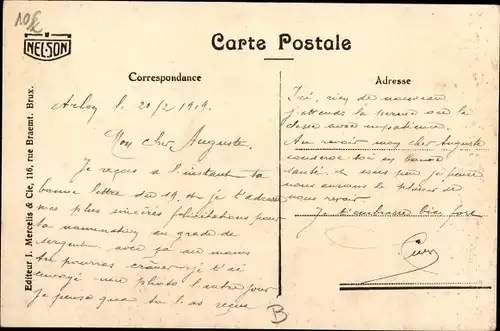 10f
NELSON
Carte Postale
Correspondance
Adresse
Editeur I. Mercelis & Cie, 116, rue Braemt. Brux.
l. 21/2 1919.
Mon cher Auguste.
Je reçois à l'instant ta
bonne lettre du 19. et je t'adresse
mes plus sincères félicitations pour
ta nomination au grade de
sergent. avec ça au moins
tu pourras crâner. je t'ai
envoyé une photo l'autre jour
je pense que tu l'as reçue
Ici, rien de nouveau
j'attends la
classe avec impatience.
Au revoir mon cher Auguste
toi en bonne
santé et
nous aurons le plaisir de
nous revoir.
Je t'embrasse bien fort
B